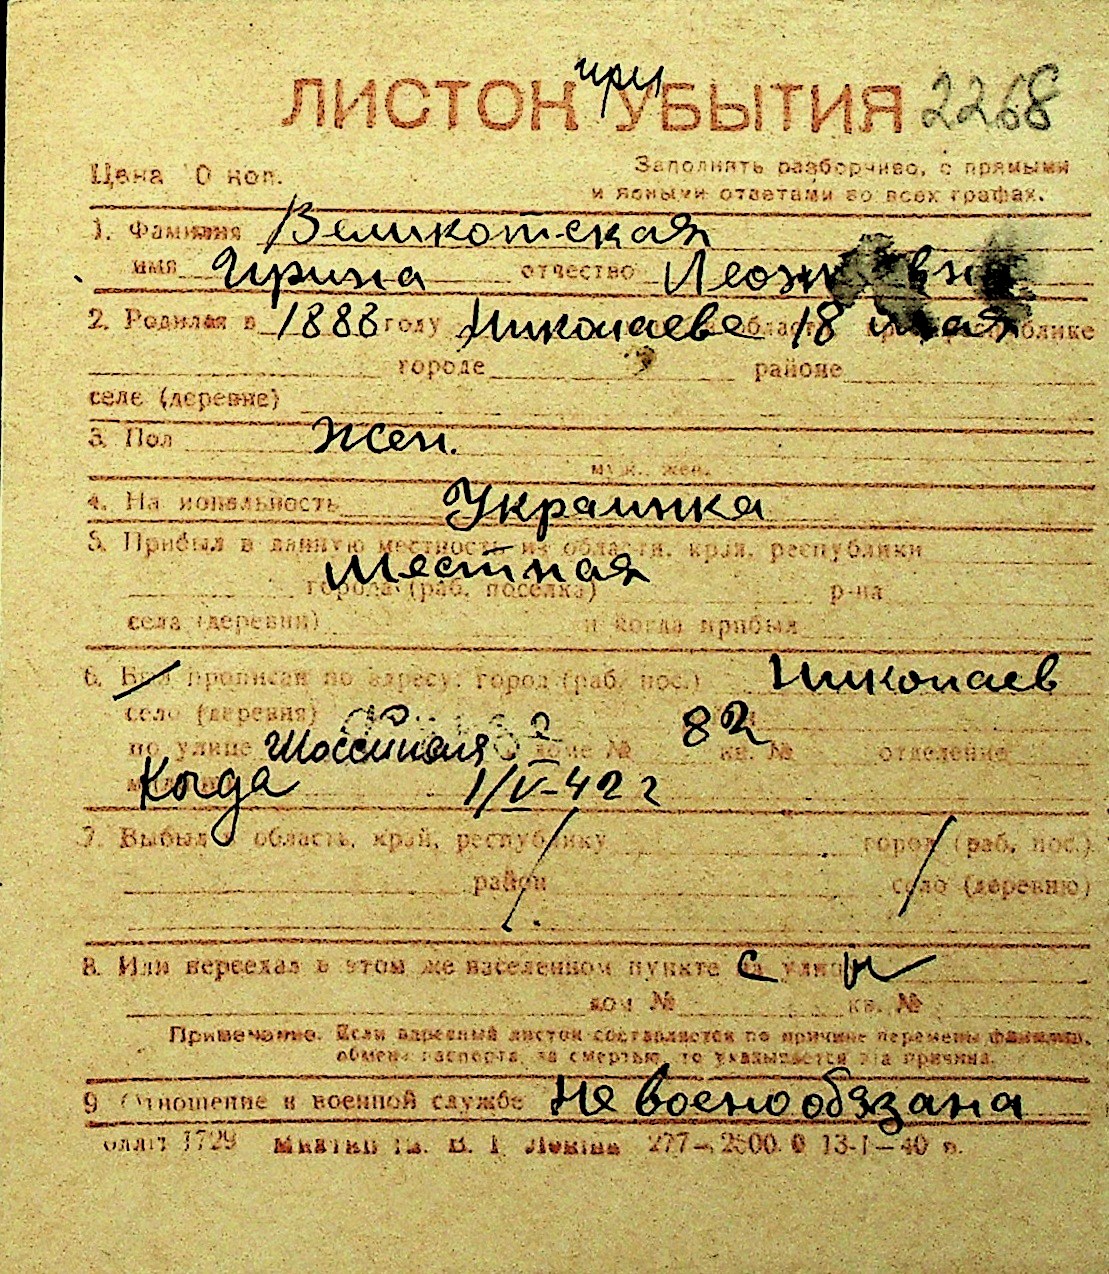 при
ЛИСТОК УБЫТИЯ 2268
Цена 10 коп.
Заполнять разборчиво, с прямыми
и ясными ответами во всех графах.
1. Фамилия Великотская
имя Ирина отчество
2. Родилая в 1888 году Николаеве области 18 мая республике
городе районе
селе (деревне)
3. Пол жен.
муж. жен.
4. Национальность Украинка
5. Прибыл в данную местность из области, края, республики
Местная
города (раб. поселка) р-на
села (деревни) и когда прибыл
6. Был прописан по адресу: город (раб. пос.) Николаев
село (деревня)
по улице доме № 82 кв. № отделение
Когда 1/V-42 г
7. Выбыл в область, край, республику город (раб. пос.)
район село (деревню)
8. Или переехал в этом же населенном пункте на улицу
дом № кв. №
Примечание. Если адресный листок составляется по причине перемены фамилии,
обмена паспорта, за смертью, то указывается эта причина.
9 Отношение к военной службе Не военообязана
1729 277—2500.0 13-I—40 г.